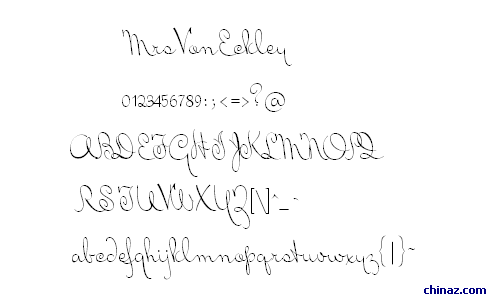 MrsVonEckley
0123456789:;<=>?@
ABCDEFGHIJKLMNOPQ
RSTUVWXYZ[\]^_`
abcdefghijklmnopqrstuvwxyz{|}~
chinaz.com